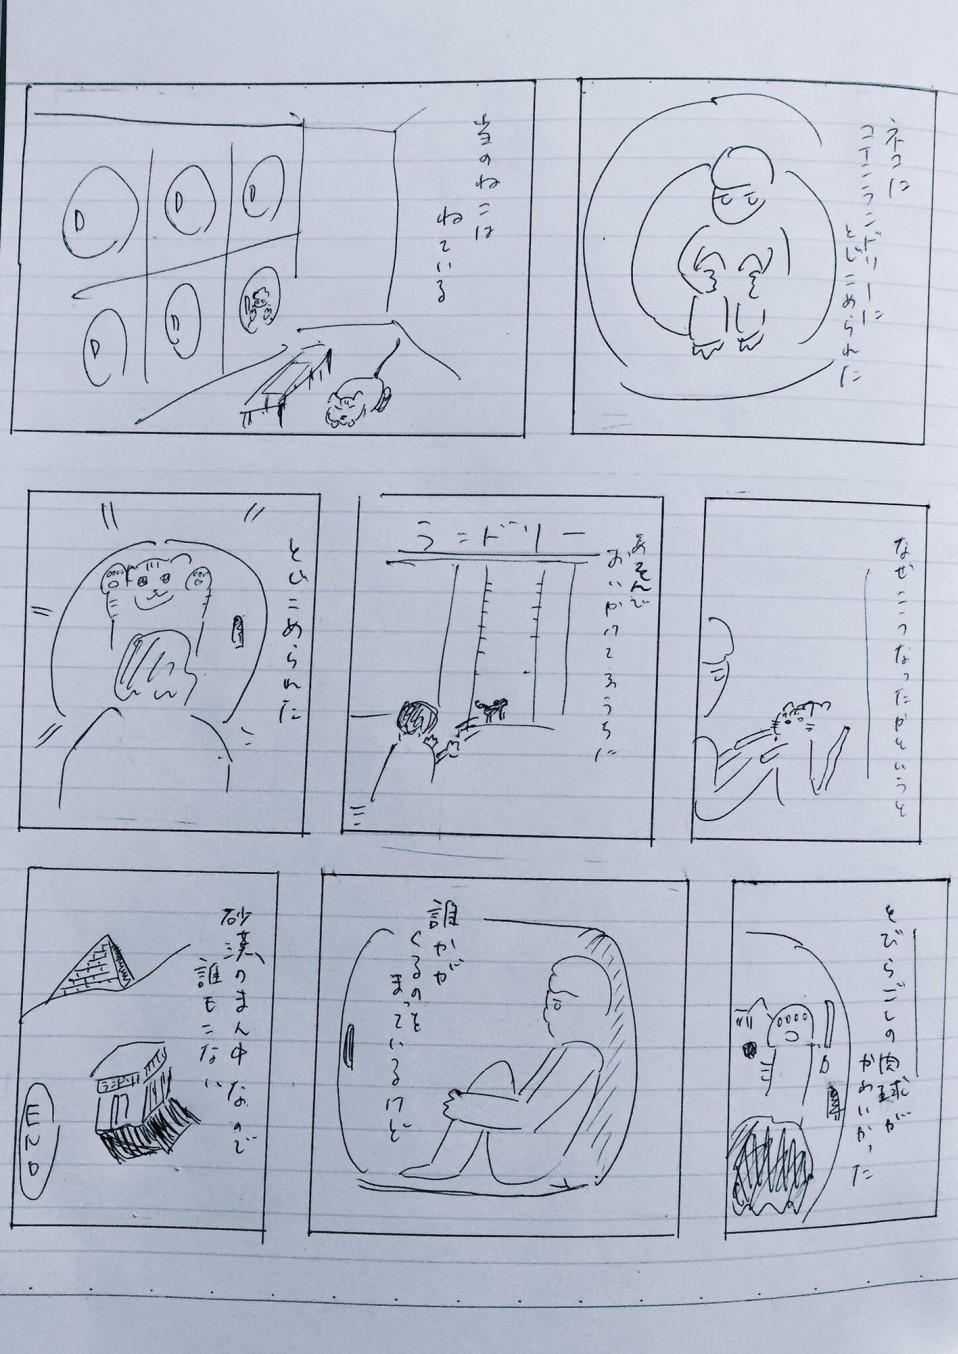 ネコに
コインランドリーに
とじこめられた
当のねこは
ねている
D
D
D
D
D
なぜこうなったかというと
あそんで
おいかけてるうちに
ランドリー
とじこめられた
とびらごしの肉球が
かわいかった
D
誰かが
くるのを
まっているけど
砂漠のまん中なので
誰もこない
ランドリー
END